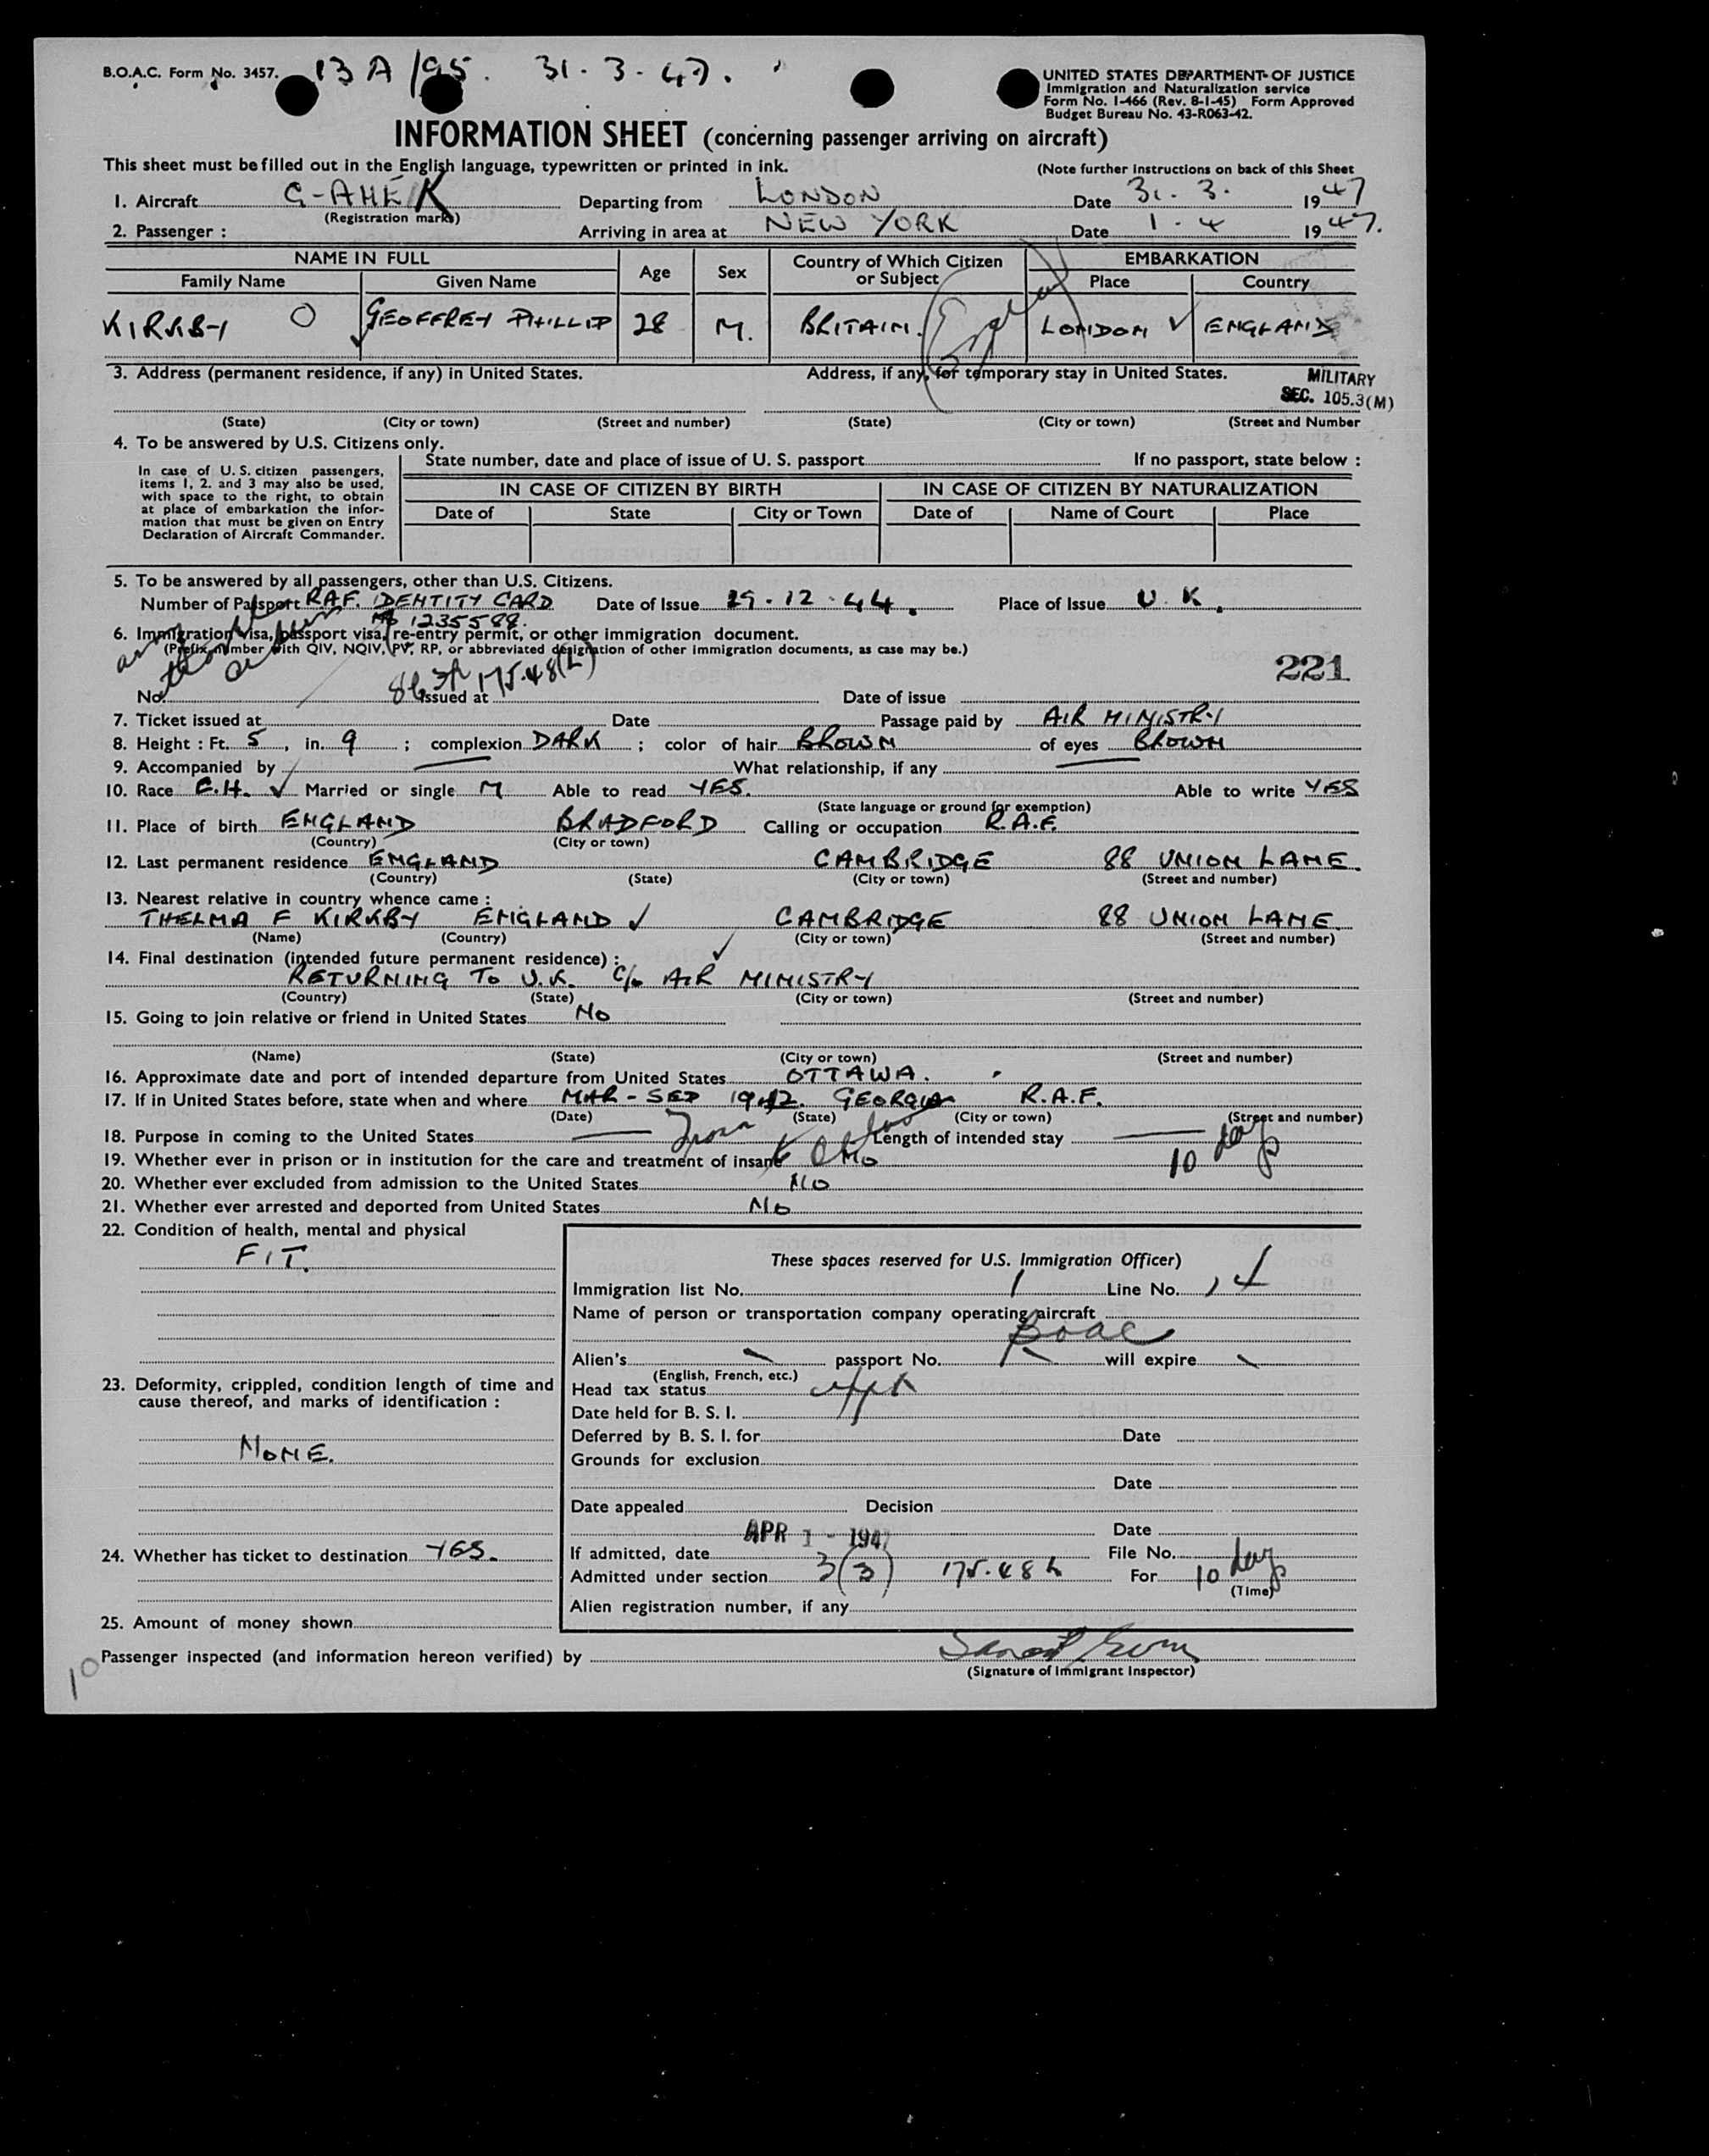 B.O.A.C. Form No. 3457. 13 A/95. 31.3.47.
UNITED STATES DEPARTMENT OF JUSTICE
Immigration and Naturalization service
Form No. I-466 (Rev. 8-1-45) Form Approved
Budget Bureau No. 43-R063-42.
INFORMATION SHEET (concerning passenger arriving on aircraft)
This sheet must be filled out in the English language, typewritten or printed in ink. (Note further Instructions on back of this Sheet
1. Aircraft G-AHEK Departing from LONDON Date 31.3. 1947
(Registration marks)
2. Passenger : Arriving in area at NEW YORK Date 1-4 1947.
NAME IN FULL Age Sex Country of Which Citizen or Subject EMBARKATION
Family Name Given Name Place Country
KIRKBY O GEOFFREY PHILLIP 28 M. BRITAIN. LONDON ENGLAND
3. Address (permanent residence, if any) in United States. Address, if any, for temporary stay in United States. MILITARY
SEC. 105.3(M)
(State) (City or town) (Street and number) (State) (City or town) (Street and Number
4. To be answered by U.S. Citizens only.
In case of U.S. citizen passengers, items 1, 2. and 3 may also be used, with space to the right, to obtain at place of embarkation the information that must be given on Entry Declaration of Aircraft Commander.
State number, date and place of issue of U. S. passport If no passport, state below :
IN CASE OF CITIZEN BY BIRTH IN CASE OF CITIZEN BY NATURALIZATION
Date of State City or Town Date of Name of Court Place
5. To be answered by all passengers, other than U.S. Citizens.
Number of Passport RAF. IDENTITY CARD Date of Issue 29.12.44. Place of Issue U.K.
No 1235588.
6. Immigration visa, passport visa, re-entry permit, or other immigration document.
(Prefix number with QIV, NQIV, PV, RP, or abbreviated designation of other immigration documents, as case may be.)
221
175.48(L)
No. Issued at Date of issue
7. Ticket issued at Date Passage paid by AIR MINISTRY
8. Height : Ft. 5, in. 9 ; complexion DARK ; color of hair BROWN of eyes BROWN
9. Accompanied by What relationship, if any
10. Race Married or single M Able to read YES. Able to write YES
(State language or ground for exemption)
11. Place of birth ENGLAND BRADFORD Calling or occupation R.A.F.
(Country) (City or town)
12. Last permanent residence ENGLAND CAMBRIDGE 88 UNION LANE.
(Country) (State) (City or town) (Street and number)
13. Nearest relative in country whence came :
THELMA F KIRKBY ENGLAND CAMBRIDGE 88 UNION LANE.
(Name) (Country) (City or town) (Street and number)
14. Final destination (intended future permanent residence) :
RETURNING TO U.K. C/o AIR MINISTRY
(Country) (State) (City or town) (Street and number)
15. Going to join relative or friend in United States No
(Name) (State) (City or town) (Street and number)
16. Approximate date and port of intended departure from United States OTTAWA.
17. If in United States before, state when and where MAR - SEP 1942. GEORGIA R.A.F.
(Date) (State) (City or town) (Street and number)
18. Purpose in coming to the United States Length of intended stay 10 days
19. Whether ever in prison or in institution for the care and treatment of insane No
20. Whether ever excluded from admission to the United States No
21. Whether ever arrested and deported from United States No
22. Condition of health, mental and physical
FIT.
These spaces reserved for U.S. Immigration Officer)
Immigration list No. 1 Line No. 14
Name of person or transportation company operating aircraft
BOAC
Alien's passport No. will expire
(English, French, etc.)
23. Deformity, crippled, condition length of time and cause thereof, and marks of identification :
NONE.
Head tax status
Date held for B. S. I.
Deferred by B. S. I. for Date
Grounds for exclusion
Date
Date appealed Decision
Date
APR 1 - 1947
24. Whether has ticket to destination YES.
If admitted, date File No.
Admitted under section 3(3) 175.48 L For 10 days
(Time)
Alien registration number, if any
25. Amount of money shown
10 Passenger inspected (and information hereon verified) by
(Signature of Immigrant Inspector)